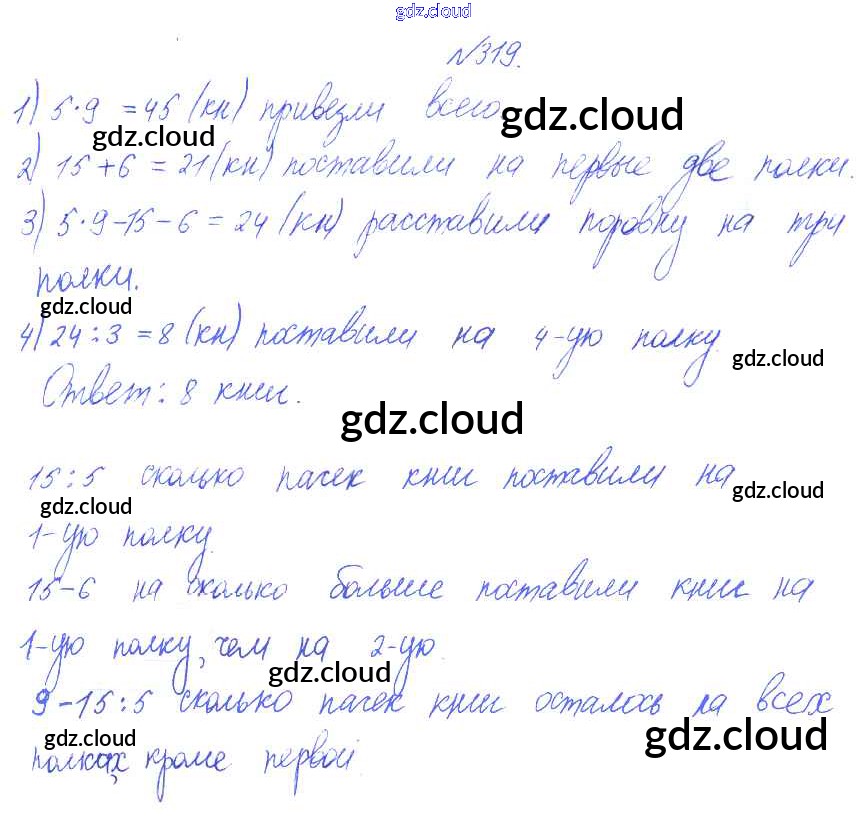 gdz.cloud
№319.
1) 5·9 = 45 (кн) привезли всего. gdz.cloud
gdz.cloud
2) 15+6 = 21 (кн) поставили на первые две полки.
3) 5·9-15-6 = 24 (кн) расставили поровну на три
полки.
gdz.cloud
4) 24:3 = 8 (кн) поставили на 4-ую полку
gdz.cloud
Ответ: 8 книг.
gdz.cloud
15:5 сколько пачек книг поставили на
gdz.cloud
gdz.cloud
1-ую полку.
15-6 на сколько больше поставили книг на
1-ую полку, чем на 2-ую.
gdz.cloud
9-15:5 сколько пачек книг осталось на всех
gdz.cloud
gdz.cloud
полках, кроме первой